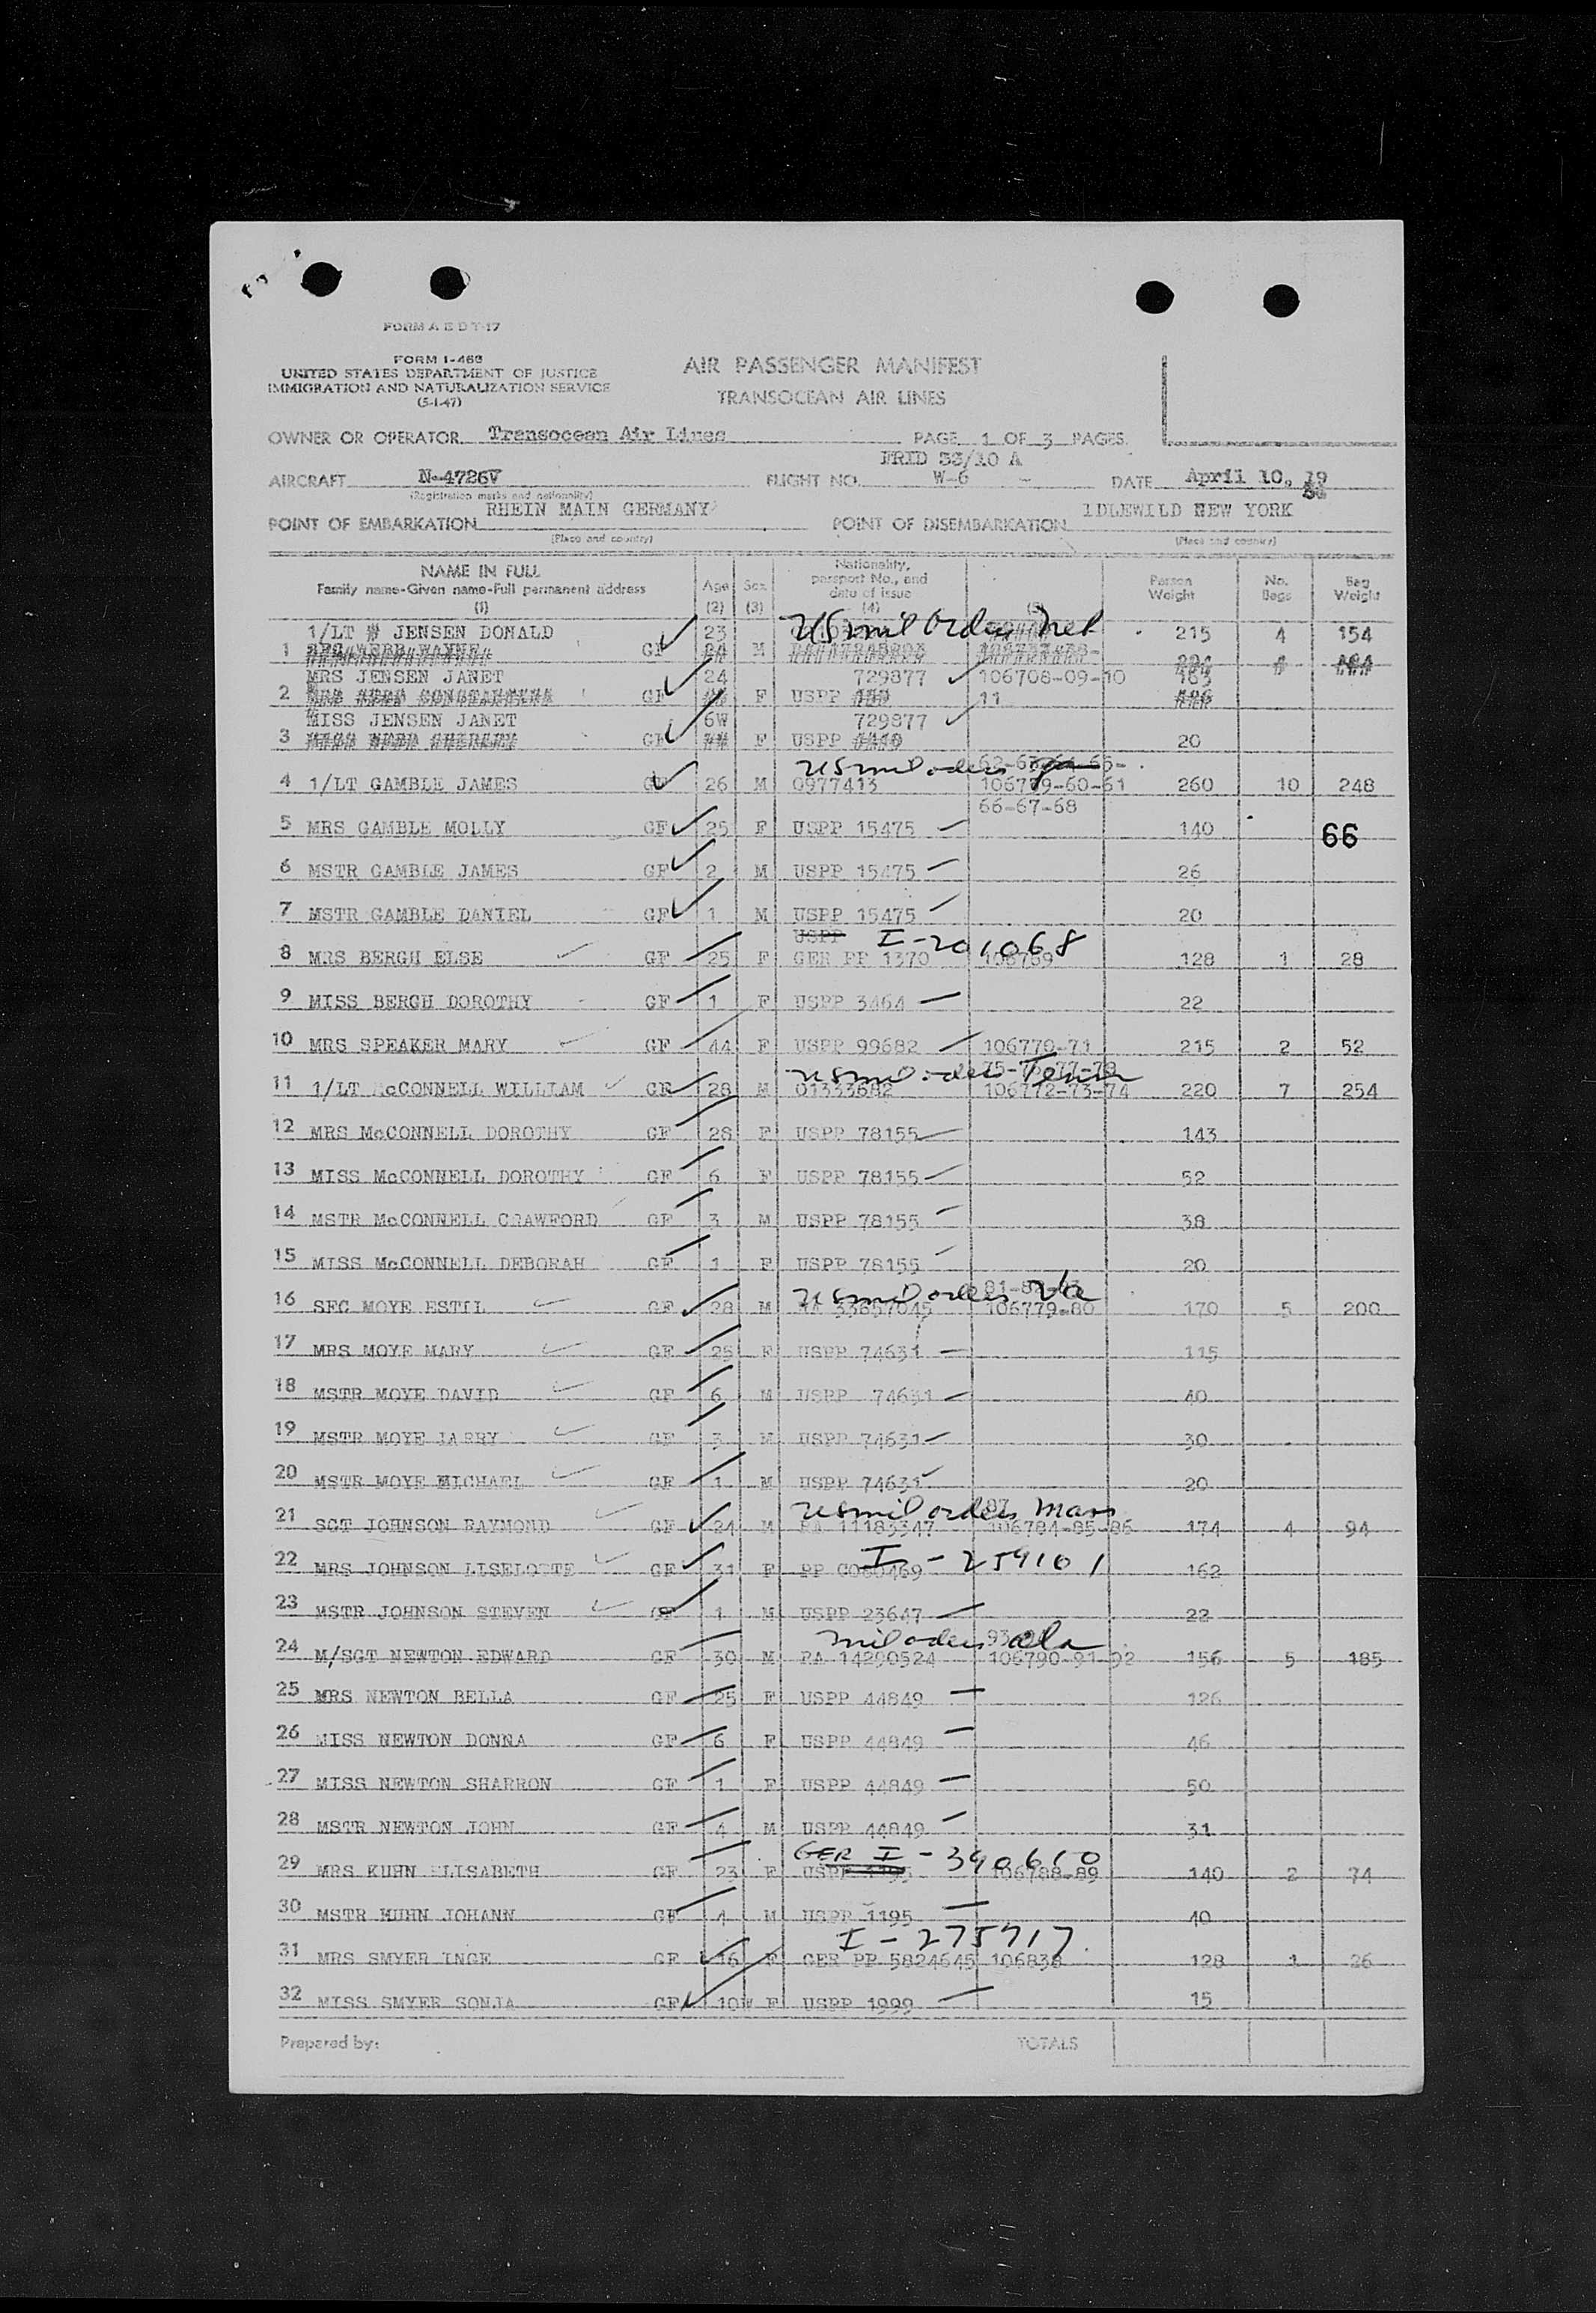 FORM A E D T-17
FORM I-466
UNITED STATES DEPARTMENT OF JUSTICE
IMMIGRATION AND NATURALIZATION SERVICE
(5-1-47)
AIR PASSENGER MANIFEST
TRANSOCEAN AIR LINES
OWNER OR OPERATOR Transocean Air Lines PAGE 1 OF 3 PAGES
53/10 A
AIRCRAFT N-4726V FLIGHT NO. W-6 - DATE April 10, 19
(Registration marks and nationality)
POINT OF EMBARKATION RHEIN MAIN GERMANY POINT OF DISEMBARKATION IDLEWILD NEW YORK
(Place and country) (Place and country)
NAME IN FULL
Family name-Given name-Full permanent address
(1)
Age
(2)
Sex
(3)
Nationality, passport No., and date of issue
(4)
(5)
Person Weight
No. Bags
Bag Weight
1/LT JENSEN DONALD 23 US mil orders 215 4 154
1 GF M
MRS JENSEN JANET 24 729877 106708-09-10 165
2 GF F USPP 11
MISS JENSEN JANET 6W 729877
3 GF F USPP 20
US mil orders
4 1/LT GAMBLE JAMES GF 26 M 0977413 260 10 248
66-67-68
5 MRS GAMBLE MOLLY GF 25 F USPP 15475 140
66
6 MSTR GAMBLE JAMES GF 2 M USPP 15475 26
7 MSTR GAMBLE DANIEL GF 1 M USPP 15475 20
USPP I-201068
8 MRS BERGH ELSE GF 25 F GER PP 1370 106769 128 1 28
9 MISS BERGH DOROTHY GF 1 F USPP 3464 22
10 MRS SPEAKER MARY GF 44 F USPP 99682 106770-71 215 2 52
US mil orders Tenn
11 1/LT McCONNELL WILLIAM GF 28 M 01333682 106772-73-74 220 7 254
12 MRS McCONNELL DOROTHY GF 28 F USPP 78155 143
13 MISS McCONNELL DOROTHY GF 6 F USPP 78155 52
14 MSTR McCONNELL CRAWFORD GF 3 M USPP 78155 38
15 MISS McCONNELL DEBORAH GF 1 F USPP 78155 20
US mil orders Va
16 SFC MOYE ESTIL GF 28 M RA 33657045 106779-80 170 5 200
17 MRS MOYE MARY GF 25 F USPP 74631 115
18 MSTR MOYE DAVID GF 6 M USPP 74631 40
19 MSTR MOYE JARRY GF 3 M USPP 74631 30
20 MSTR MOYE MICHAEL GF 1 M USPP 74631 20
US mil orders Mass 87
21 SGT JOHNSON RAYMOND GF 24 M RA 11183347 106784-85-86 174 4 94
I-259101
22 MRS JOHNSON LISELOTTE GF 31 F PP 162
23 MSTR JOHNSON STEVEN GF 1 M USPP 23647 22
mil orders Ala
24 M/SGT NEWTON EDWARD GF 30 M RA 14290524 106790-91-92 156 5 185
25 MRS NEWTON BELLA GF 25 F USPP 44849 126
26 MISS NEWTON DONNA GF 6 F USPP 44849 46
27 MISS NEWTON SHARRON GF 1 F USPP 44849 50
28 MSTR NEWTON JOHN GF 4 M USPP 44849 31
GER I-390610
29 MRS KUHN ELISABETH GF 23 F USPP 1195 106788-89 140 2 74
30 MSTR KUHN JOHANN GF 4 M USPP 1195 40
I-275717
31 MRS SMYER INGE GF 16 F GER PP 5824645 106838 128 1 26
32 MISS SMYER SONJA GF 10W F USPP 1999 15
Prepared by: TOTALS